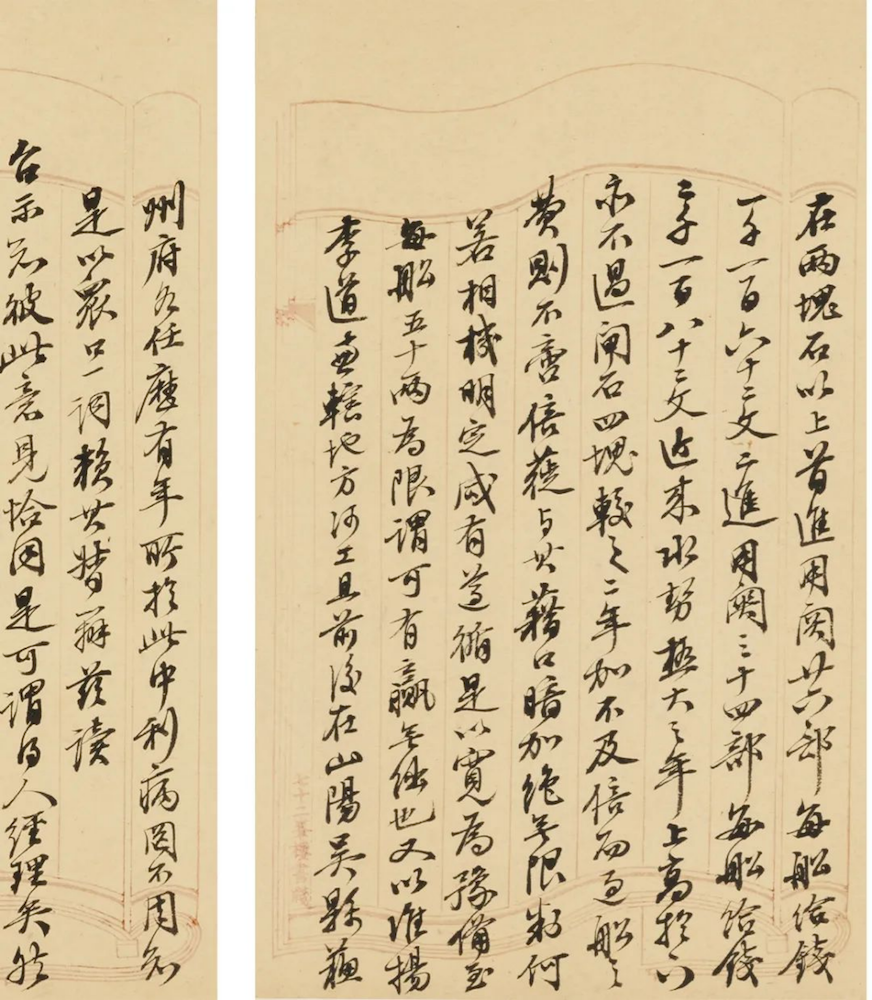 在兩塊石以上首進用関廿六部每船給錢
一千一百六十二文二進用関三十四部每船給錢
二千一百八十二文近來水勢極大之年上高於下
亦不過閘石四塊較之二年加不及倍而過船之
費則不啻倍蓰与其藉口暗加絶無限數何
若相機明定咸有遵循是以寬為豫備至
每船五十兩為限謂可有贏無絀也又以淮揚
李道兼轄地方河工且前後在山陽吳縣蘇
州府各任歷有年所於此中利病罔不周知
是以眾口一詞賴其替辦茲讀
台示知彼此意見恰同是可謂得人經理矣然
七十二